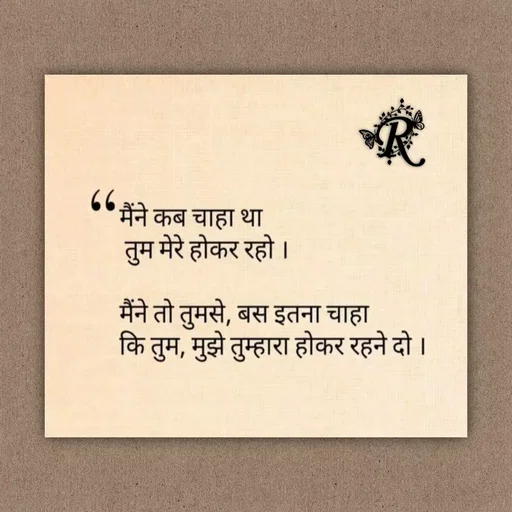 R
“ मैंने कब चाहा था
तुम मेरे होकर रहो ।
मैंने तो तुमसे, बस इतना चाहा
कि तुम, मुझे तुम्हारा होकर रहने दो ।